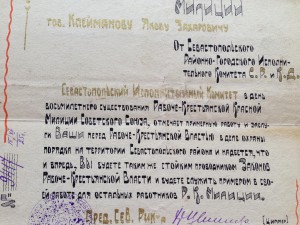 Милиции
тов. Клейманову Якову Захаровичу
От Севастопольского
Районно-Городского Исполни-
тельного Комитета С.Р. и К.Д.
Севастопольский Исполнительный Комитет в день
восьмилетнего существования Рабоче-Крестьянской Красной
Милиции Советского Союза, отмечает примерную работу и заслу-
ги Ваши перед Рабоче-Крестьянской Властью в деле охраны
порядка на территории Севастопольского района и надеется, что
и впредь Вы будете таким же стойким проводником Законов
Рабоче-Крестьянской Власти и будете служить примером в сво-
ей работе для остальных работников Р.К. Милиции
Пред. Сев. Рик-а